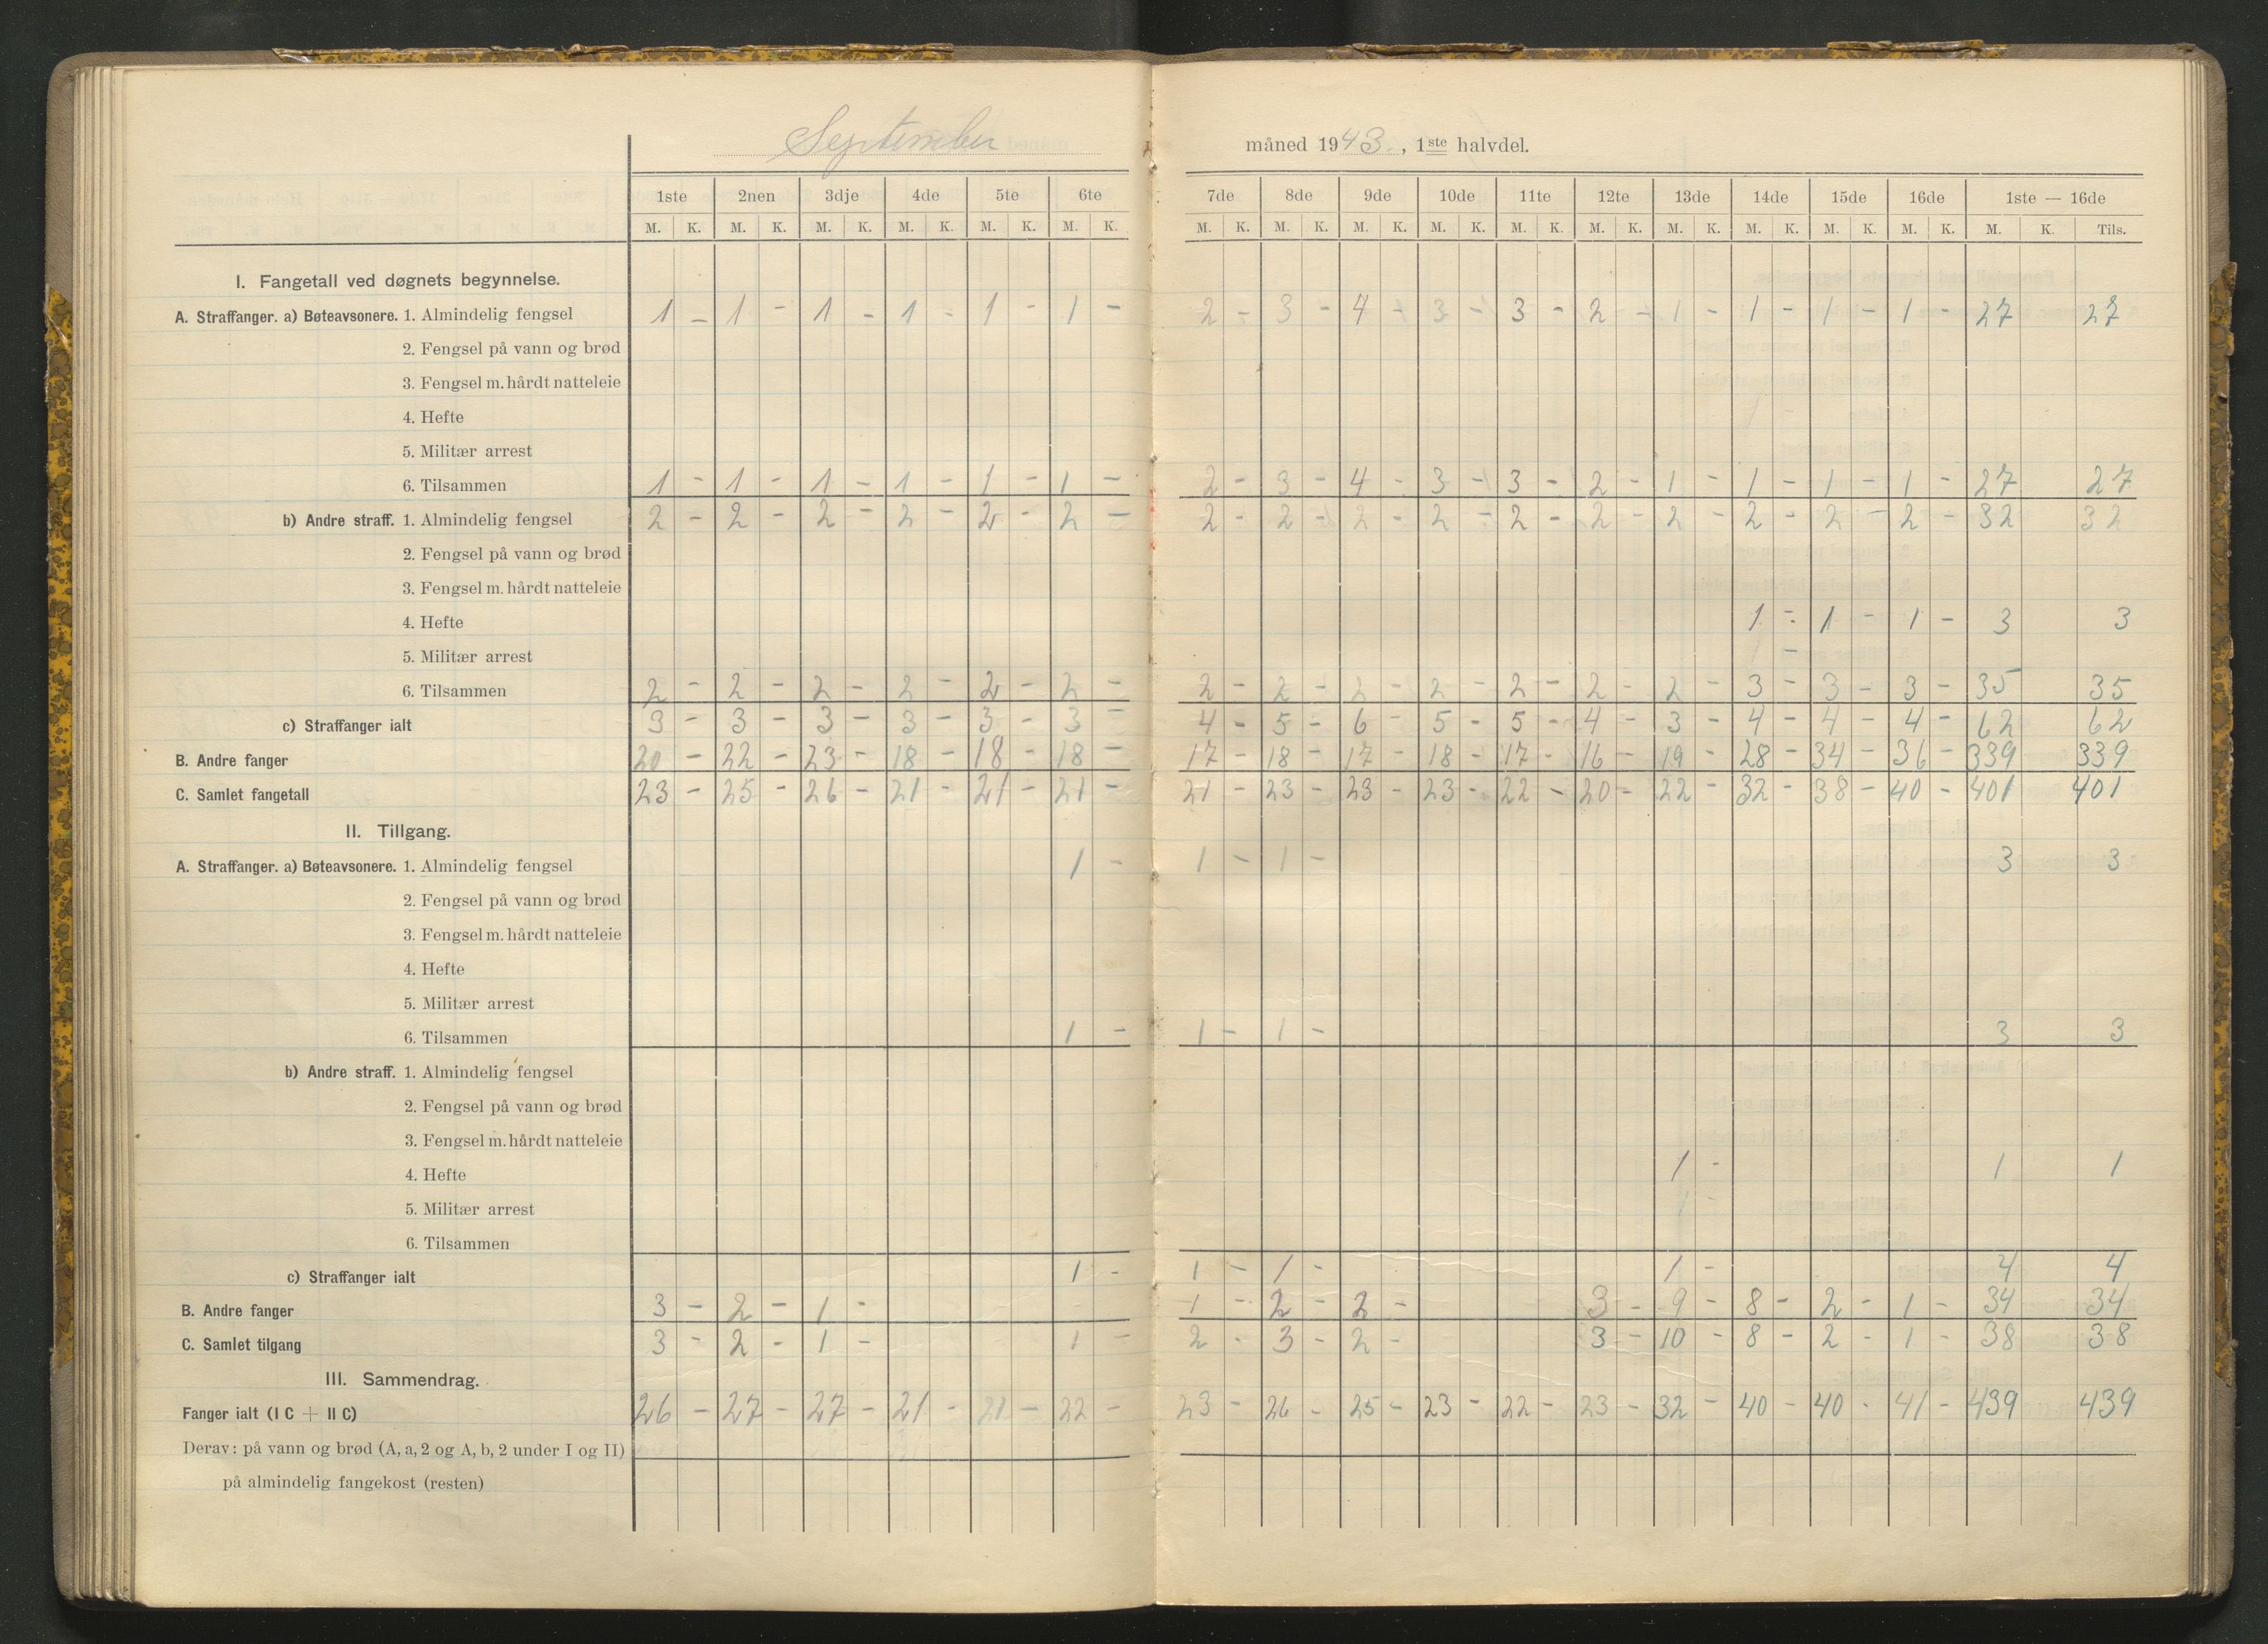 September måned 1943, 1ste halvdel.
1ste 2nen 3dje 4de 5te 6te 7de 8de 9de 10de 11te 12te 13de 14de 15de 16de 1ste — 16de
M. K. M. K. M. K. M. K. M. K. M. K. M. K. M. K. M. K. M. K. M. K. M. K. M. K. M. K. M. K. M. K. M. K. Tils.
I. Fangetall ved døgnets begynnelse.
A. Straffanger. a) Bøteavsonere. 1. Almindelig fengsel 1 - 1 - 1 - 1 - 1 - 1 - 2 - 3 - 4 - 3 - 3 - 2 - 1 - 1 - 1 - 1 - 27 27
2. Fengsel på vann og brød
3. Fengsel m. hårdt natteleie
4. Hefte
5. Militær arrest
6. Tilsammen 1 - 1 - 1 - 1 - 1 - 1 - 2 - 3 - 4 - 3 - 3 - 2 - 1 - 1 - 1 - 1 - 27 27
b) Andre straff. 1. Almindelig fengsel 2 - 2 - 2 - 2 - 2 - 2 - 2 - 2 - 2 - 2 - 2 - 2 - 2 - 2 - 2 - 2 - 32 32
2. Fengsel på vann og brød
3. Fengsel m. hårdt natteleie
4. Hefte 1 - 1 - 1 - 3 3
5. Militær arrest
6. Tilsammen 2 - 2 - 2 - 2 - 2 - 2 - 2 - 2 - 2 - 2 - 2 - 2 - 2 - 3 - 3 - 3 - 35 35
c) Straffanger ialt 3 - 3 - 3 - 3 - 3 - 3 - 4 - 5 - 6 - 5 - 5 - 4 - 3 - 4 - 4 - 4 - 62 62
B. Andre fanger 20 - 22 - 23 - 18 - 18 - 18 - 17 - 18 - 17 - 18 - 17 - 16 - 19 - 28 - 34 - 36 - 339 339
C. Samlet fangetall 23 - 25 - 26 - 21 - 21 - 21 - 21 - 23 - 23 - 23 - 22 - 20 - 22 - 32 - 38 - 40 - 401 401
II. Tillgang.
A. Straffanger. a) Bøteavsonere. 1. Almindelig fengsel 1 - 1 - 1 - 3 3
2. Fengsel på vann og brød
3. Fengsel m. hårdt natteleie
4. Hefte
5. Militær arrest
6. Tilsammen 1 - 1 - 1 - 3 3
b) Andre straff. 1. Almindelig fengsel
2. Fengsel på vann og brød
3. Fengsel m. hårdt natteleie
4. Hefte 1 - 1 1
5. Militær arrest
6. Tilsammen
c) Straffanger ialt 1 - 1 - 1 - 1 - 4 4
B. Andre fanger 3 - 2 - 1 - 1 - 2 - 2 - 3 - 9 - 8 - 2 - 1 - 34 34
C. Samlet tilgang 3 - 2 - 1 - 1 - 2 - 3 - 2 - 3 - 10 - 8 - 2 - 1 - 38 38
III. Sammendrag.
Fanger ialt (I C + II C) 26 - 27 - 27 - 21 - 21 - 22 - 23 - 26 - 25 - 23 - 22 - 23 - 32 - 40 - 40 - 41 - 439 439
Derav: på vann og brød (A, a, 2 og A, b, 2 under I og II)
på almindelig fangekost (resten)